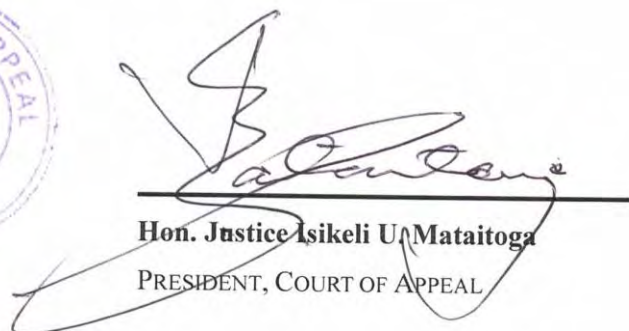 APPEAL
Hon. Justice Isikeli U. Mataitoga
PRESIDENT, COURT OF APPEAL